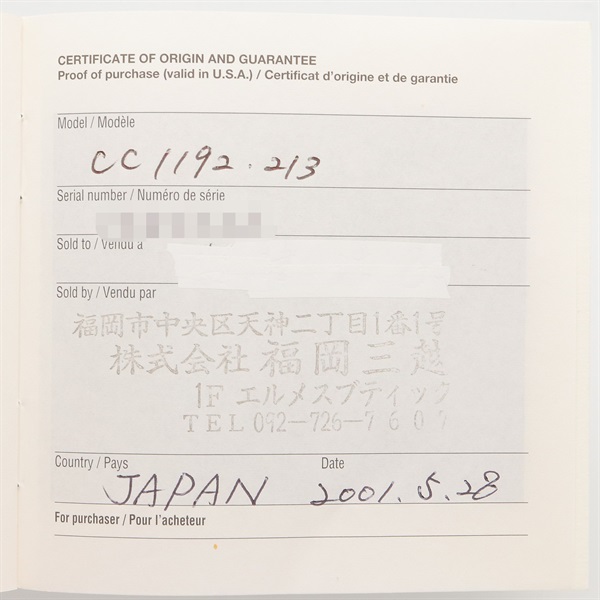 CERTIFICATE OF ORIGIN AND GUARANTEE
Proof of purchase (valid in U.S.A.) / Certificat d'origine et de garantie
Model / Modèle
CC1192.213
Serial number / Numéro de série
Sold to / Vendu à
Sold by / Vendu par
福岡市中央区天神二丁目1番1号
株式会社 福岡三越
1F エルメスブティック
TEL 092-726-7607
Country / Pays
Date
JAPAN 2001.5.28
For purchaser / Pour l'acheteur